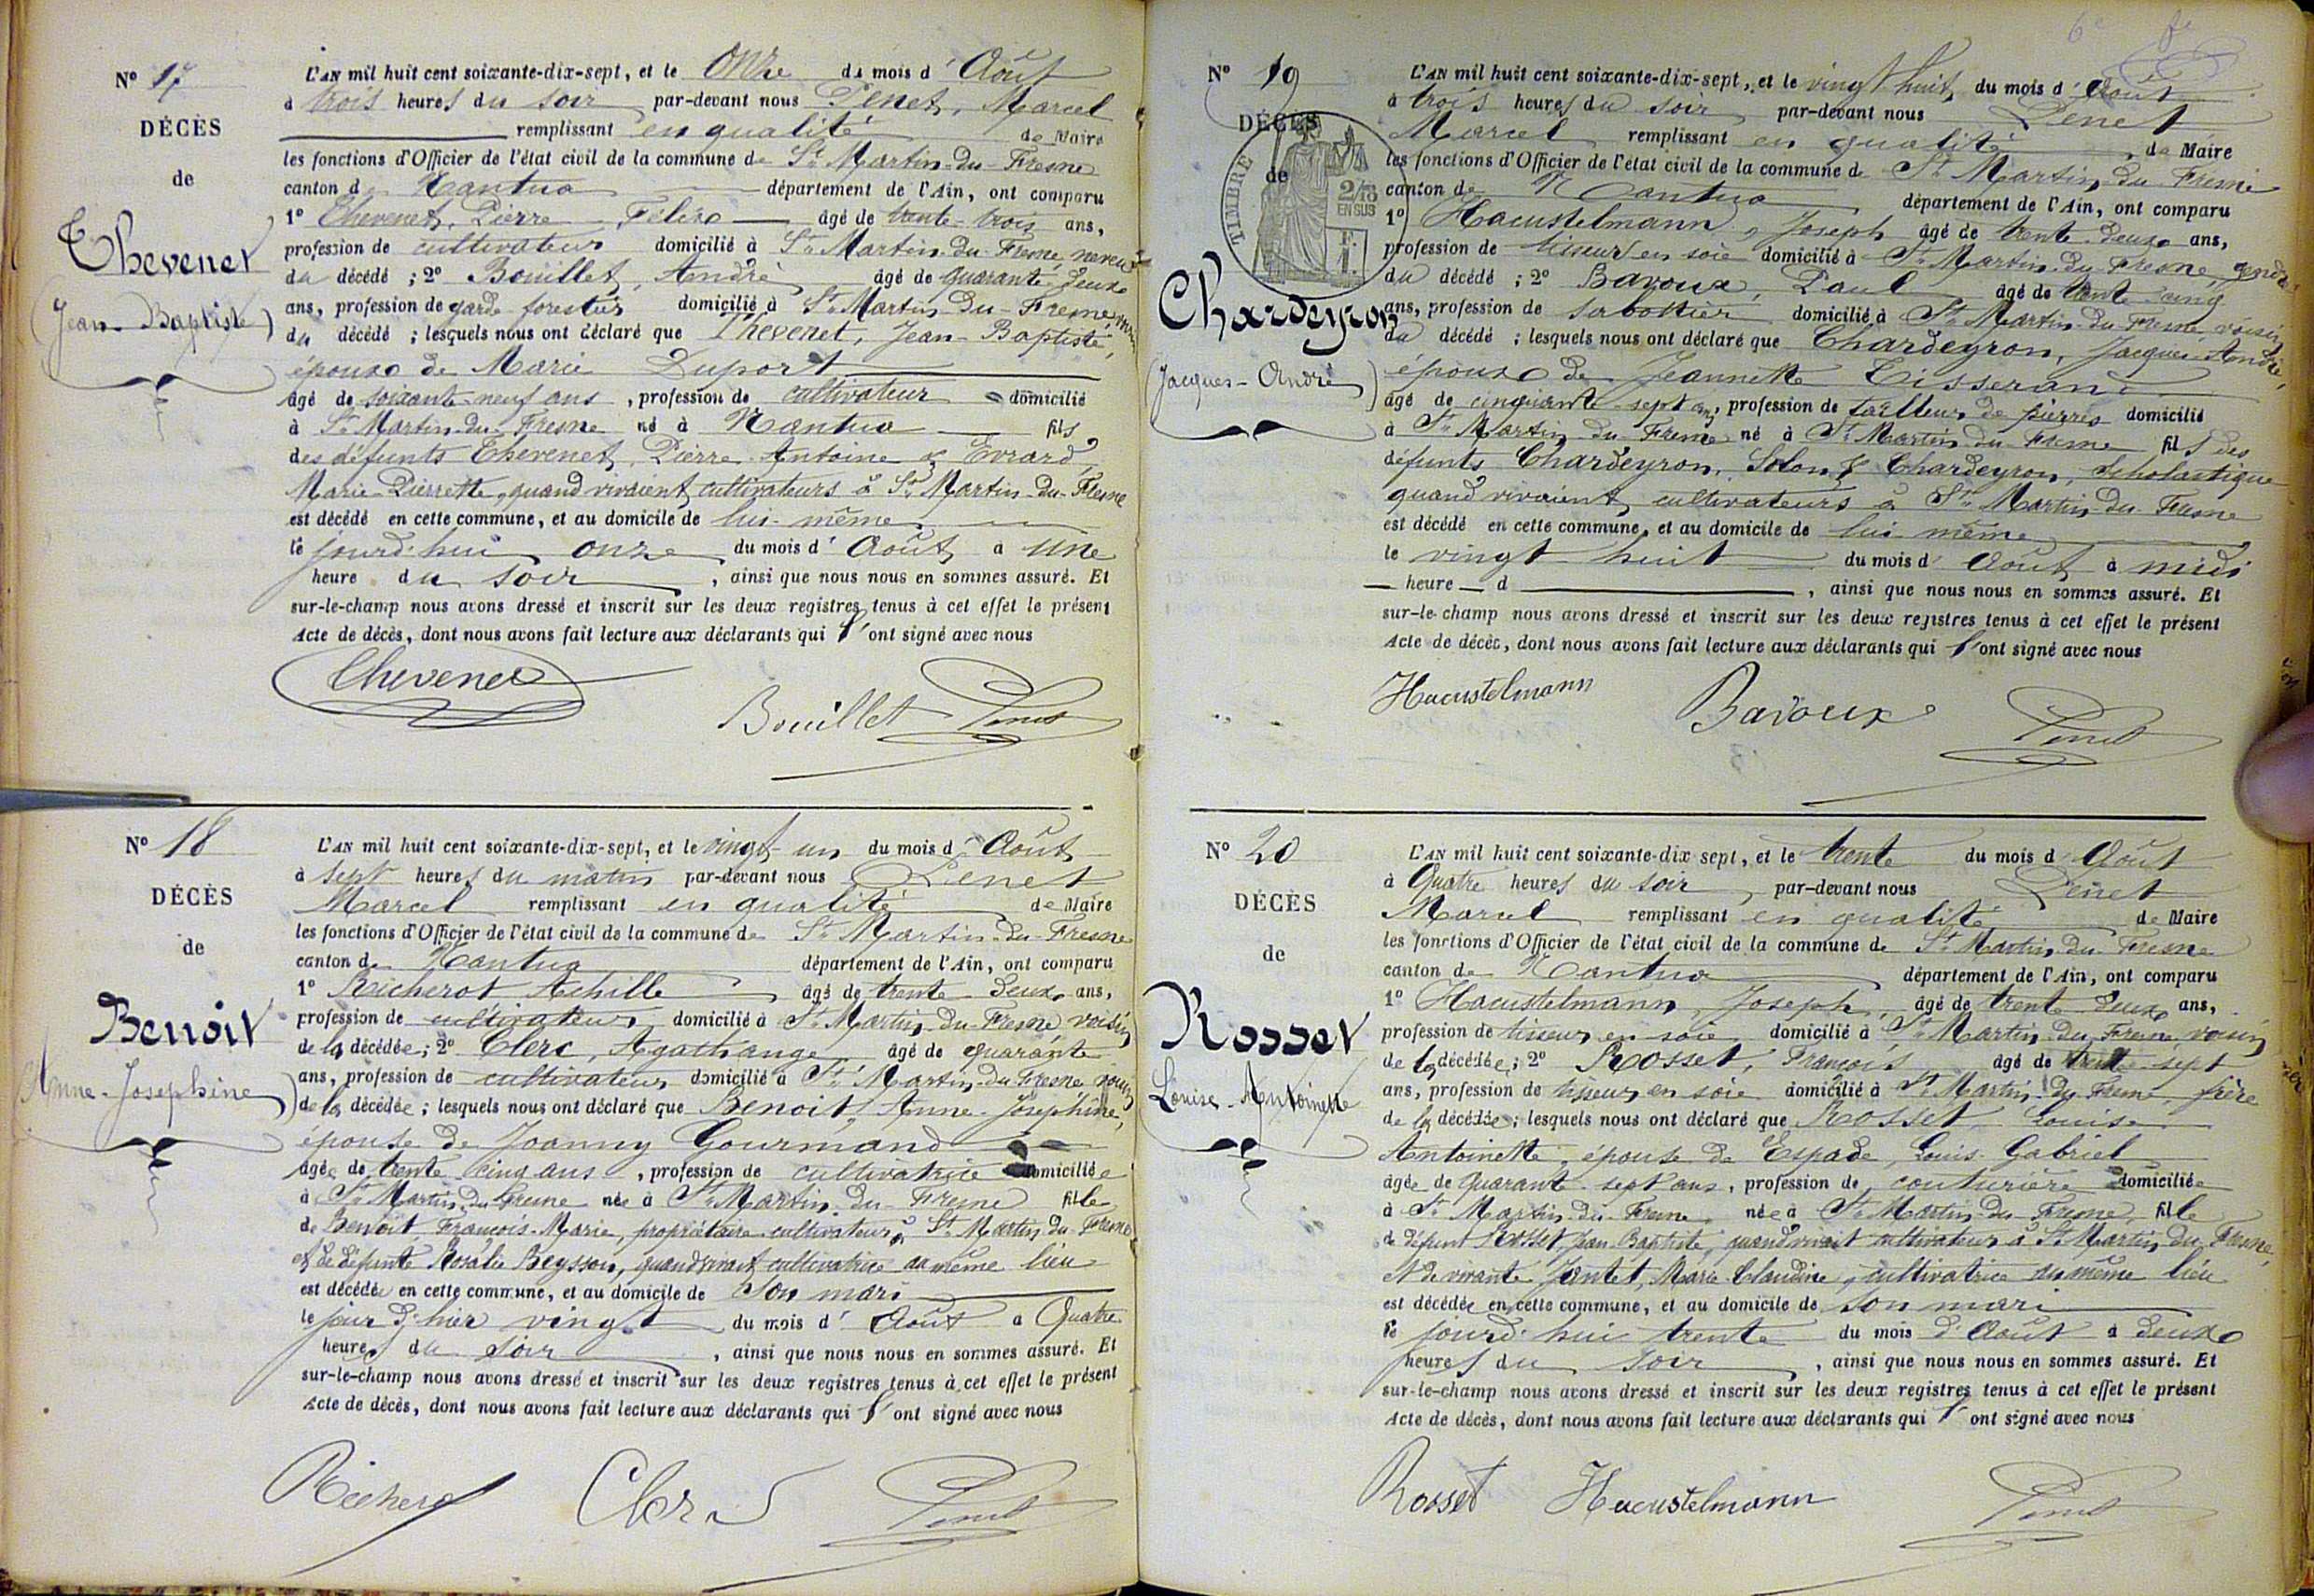 N° 17
DÉCÈS
de
Thevenet
(Jean-Baptiste)
L'AN mil huit cent soixante-dix-sept, et le Onze du mois d'Août
à trois heures du soir par-devant nous Penet, Marcel
remplissant en qualité de Maire
les fonctions d'Officier de l'état civil de la commune de St Martin-du-Fresne
canton de Nantua département de l'Ain, ont comparu
1° Thevenet, Pierre Félix âgé de trente-trois ans,
profession de cultivateur domicilié à St Martin-du-Fresne, neveu
du décédé ; 2° Bouillet, André âgé de quarante-deux
ans, profession de garde forestier domicilié à St Martin-du-Fresne,
du décédé ; lesquels nous ont déclaré que Thevenet, Jean-Baptiste,
époux de Marie Duport
âgé de soixante-neuf ans, profession de cultivateur domicilié
à St Martin-du-Fresne né à Nantua fils
des défunts Thevenet, Pierre Antoine & Evrard
Marie-Pierrette, quand vivaient cultivateurs à St Martin-du-Fresne
est décédé en cette commune, et au domicile de lui-même
le jourd'hui onze du mois d'Août à une
heure du soir, ainsi que nous nous en sommes assuré. Et
sur-le-champ nous avons dressé et inscrit sur les deux registres tenus à cet effet le présent
Acte de décès, dont nous avons fait lecture aux déclarants qui l'ont signé avec nous
Thevenet
Bouillet Penet
N° 18
DÉCÈS
de
Benoit
(Anne-Josephine)
L'AN mil huit cent soixante-dix-sept, et le vingt-un du mois d'Août
à sept heures du matin par-devant nous Penet
Marcel remplissant en qualité de Maire
les fonctions d'Officier de l'état civil de la commune de St Martin-du-Fresne
canton de Nantua département de l'Ain, ont comparu
1° Richerot Achille âgé de trente-deux ans,
profession de cultivateur domicilié à St Martin-du-Fresne, voisin
de la décédée ; 2° Clerc, Agathange âgé de quarante
ans, profession de cultivateur domicilié à St Martin-du-Fresne voisin
de la décédée ; lesquels nous ont déclaré que Benoit, Anne-Joséphine,
épouse de Joanny Gourmand
âgée de trente cinq ans, profession de cultivatrice domiciliée
à St Martin-du-Fresne née à St Martin-du-Fresne fille
de Benoit, François-Marie, propriétaire cultivateur à St Martin-du-Fresne
et de défunte Rosalie Beysson, quand vivait cultivatrice au même lieu
est décédée en cette commune, et au domicile de Son mari
le jour d'hier vingt du mois d'Août à Quatre
heures du soir, ainsi que nous nous en sommes assuré. Et
sur-le-champ nous avons dressé et inscrit sur les deux registres tenus à cet effet le présent
Acte de décès, dont nous avons fait lecture aux déclarants qui l'ont signé avec nous
Richerot Clerc Penet
N° 19
DÉCÈS
de
TIMBRE
2/10
EN SUS
Chardeyron
(Jacques-André)
L'AN mil huit cent soixante-dix-sept, et le vingt huit du mois d'Août
à trois heures du soir par-devant nous Penet
Marcel remplissant en qualité de Maire
les fonctions d'Officier de l'état civil de la commune de St Martin-du-Fresne
canton de Nantua département de l'Ain, ont comparu
1° Hacustelmann, Joseph âgé de trente-deux ans,
profession de tisseur en soie domicilié à St Martin-du-Fresne, gendre
du décédé ; 2° Bavoux, Paul âgé de trente-cinq
ans, profession de sabottier domicilié à St Martin-du-Fresne, voisin
du décédé ; lesquels nous ont déclaré que Chardeyron, Jacques André,
époux de Jeannette Tisserand
âgé de cinquante-sept ans, profession de tailleur de pierres domicilié
à St Martin-du-Fresne né à St Martin-du-Fresne fils des
défunts Chardeyron, Solon & Chardeyron, Scholastique
quand vivaient cultivateurs à St Martin-du-Fresne
est décédé en cette commune, et au domicile de lui-même
le vingt-huit du mois d'Août à midi
heure d, ainsi que nous nous en sommes assuré. Et
sur-le-champ nous avons dressé et inscrit sur les deux registres tenus à cet effet le présent
Acte de décès, dont nous avons fait lecture aux déclarants qui l'ont signé avec nous
Hacustelmann Bavoux Penet
N° 20
DÉCÈS
de
Rosset
Louise-Antoinette
L'AN mil huit cent soixante-dix-sept, et le trente du mois d'Août
à Quatre heures du soir, par-devant nous Penet
Marcel remplissant en qualité de Maire
les fonctions d'Officier de l'état civil de la commune de St Martin-du-Fresne
canton de Nantua département de l'Ain, ont comparu
1° Hacustelmann, Joseph, âgé de trente-deux ans,
profession de tisseur en soie domicilié à St Martin-du-Fresne, voisin
de la décédée ; 2° Rosset, François âgé de trente-sept
ans, profession de tisseur en soie domicilié à St Martin-du-Fresne, frère
de la décédée ; lesquels nous ont déclaré que Rosset Louise
Antoinette, épouse de Espade, Louis Gabriel
âgée de Quarante-sept ans, profession de couturière domiciliée
à St Martin-du-Fresne, née à St Martin-du-Fresne, fille
de défunt Rosset, Jean-Baptiste, quand vivait cultivateur à St Martin-du-Fresne,
et de vivante Jantet, Marie Claudine, cultivatrice au même lieu
est décédée en cette commune, et au domicile de son mari
le jourd'hui trente du mois d'Août à deux
heures du soir, ainsi que nous nous en sommes assuré. Et
sur-le-champ nous avons dressé et inscrit sur les deux registres tenus à cet effet le présent
Acte de décès, dont nous avons fait lecture aux déclarants qui l'ont signé avec nous
Rosset Hacustelmann Penet